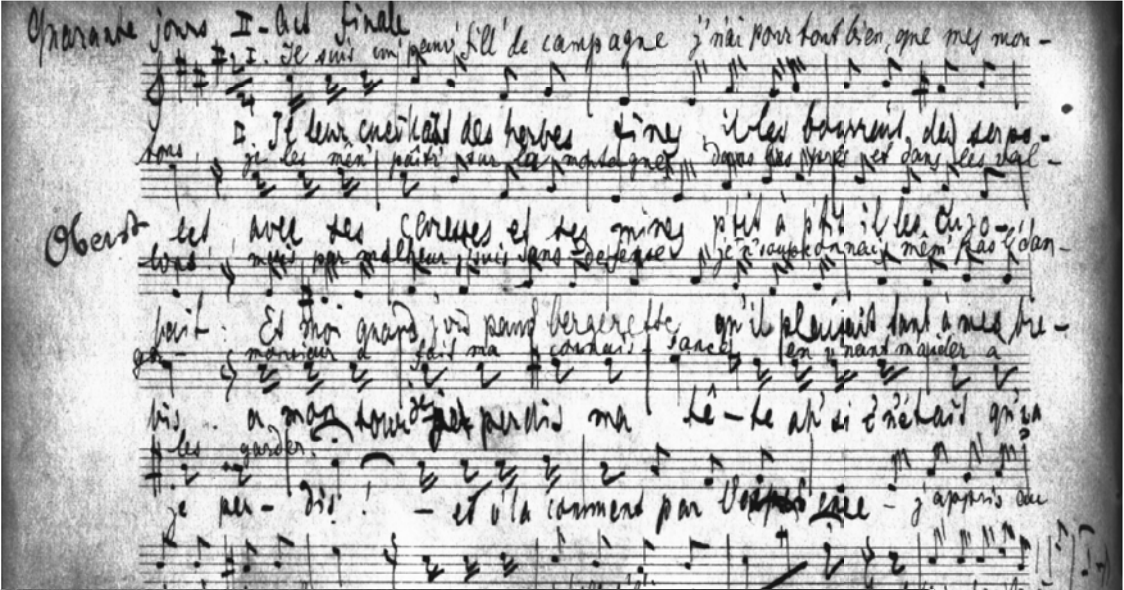 Quarante jours II-Act Finale
I. Je suis un' pauv' fill' de campagne j'n'ai pour tout bien, que mes mou-
I. Il leur cueillait des herbes fines, il les bourrait de serpo-
tons, je les mên' paîtr' sur la montagne, dans les prés et dans les val-
Oberst let avec ses caresses et ses mines p'tit à p'tit il les
lons! mais par malheur, suis sans défense j'n'soupçonnais mêm' pas l'dan-
Et moi quand j'vis pauv' bergerette, qu'il plaisait tant à mes bre-
ger- monsieur a fait ma connaissance, en v'nant m'aider à
bis. a mon tour je perdis ma tê-te ah' si c'n'était qu'ça
les garder.
je per-dis! - et v'là comment par - j'appris au